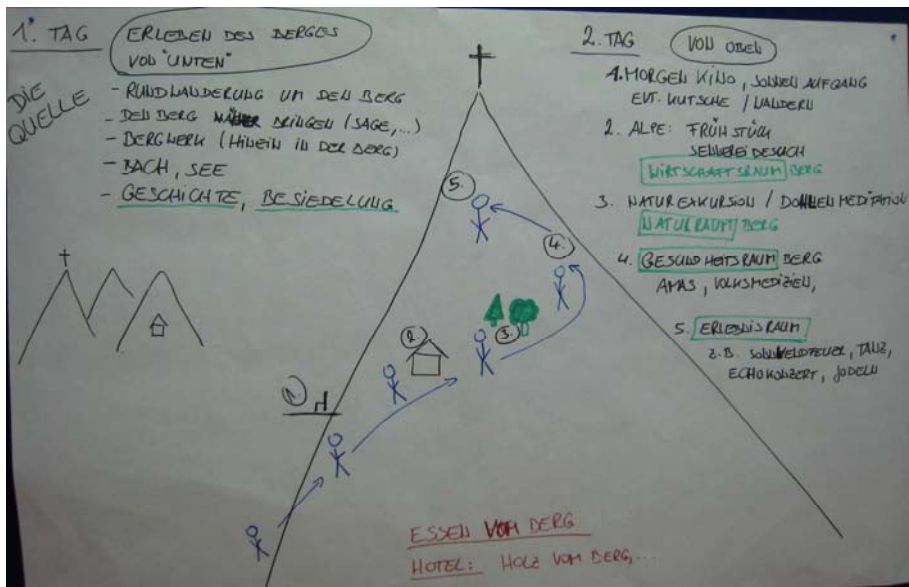 1. TAG
ERLEBEN DES BERGES
VON "UNTEN"
DIE
QUELLE
- RUNDWANDERUNG UM DEN BERG
- DEN BERG NÄHER BRINGEN (SAGE,...)
- BERGWERK (HINEIN IN DER BERG)
- BACH, SEE
- GESCHICHTE, BESIEDELUNG
2. TAG
VON OBEN
1. MORGEN KINO, SONNEN AUFGANG
EVT. KUTSCHE / WANDERN
2. ALPE: FRÜHSTÜCK
SENNEREIBESUCH
WIRTSCHAFTSRAUM BERG
3. NATUREXKURSION / DOHLENMEDITATION
NATURRAUM BERG
4. GESUNDHEITSRAUM BERG
AMAS, VOLKSMEDIZIEN,
5. ERLEBNISRAUM
Z.B. SONNWENDFEUER, TANZ,
ECHOKONZERT, JODELN
5.
4.
3.
2.
1.
ESSEN VOM BERG
HOTEL: HOLZ VOM BERG,...